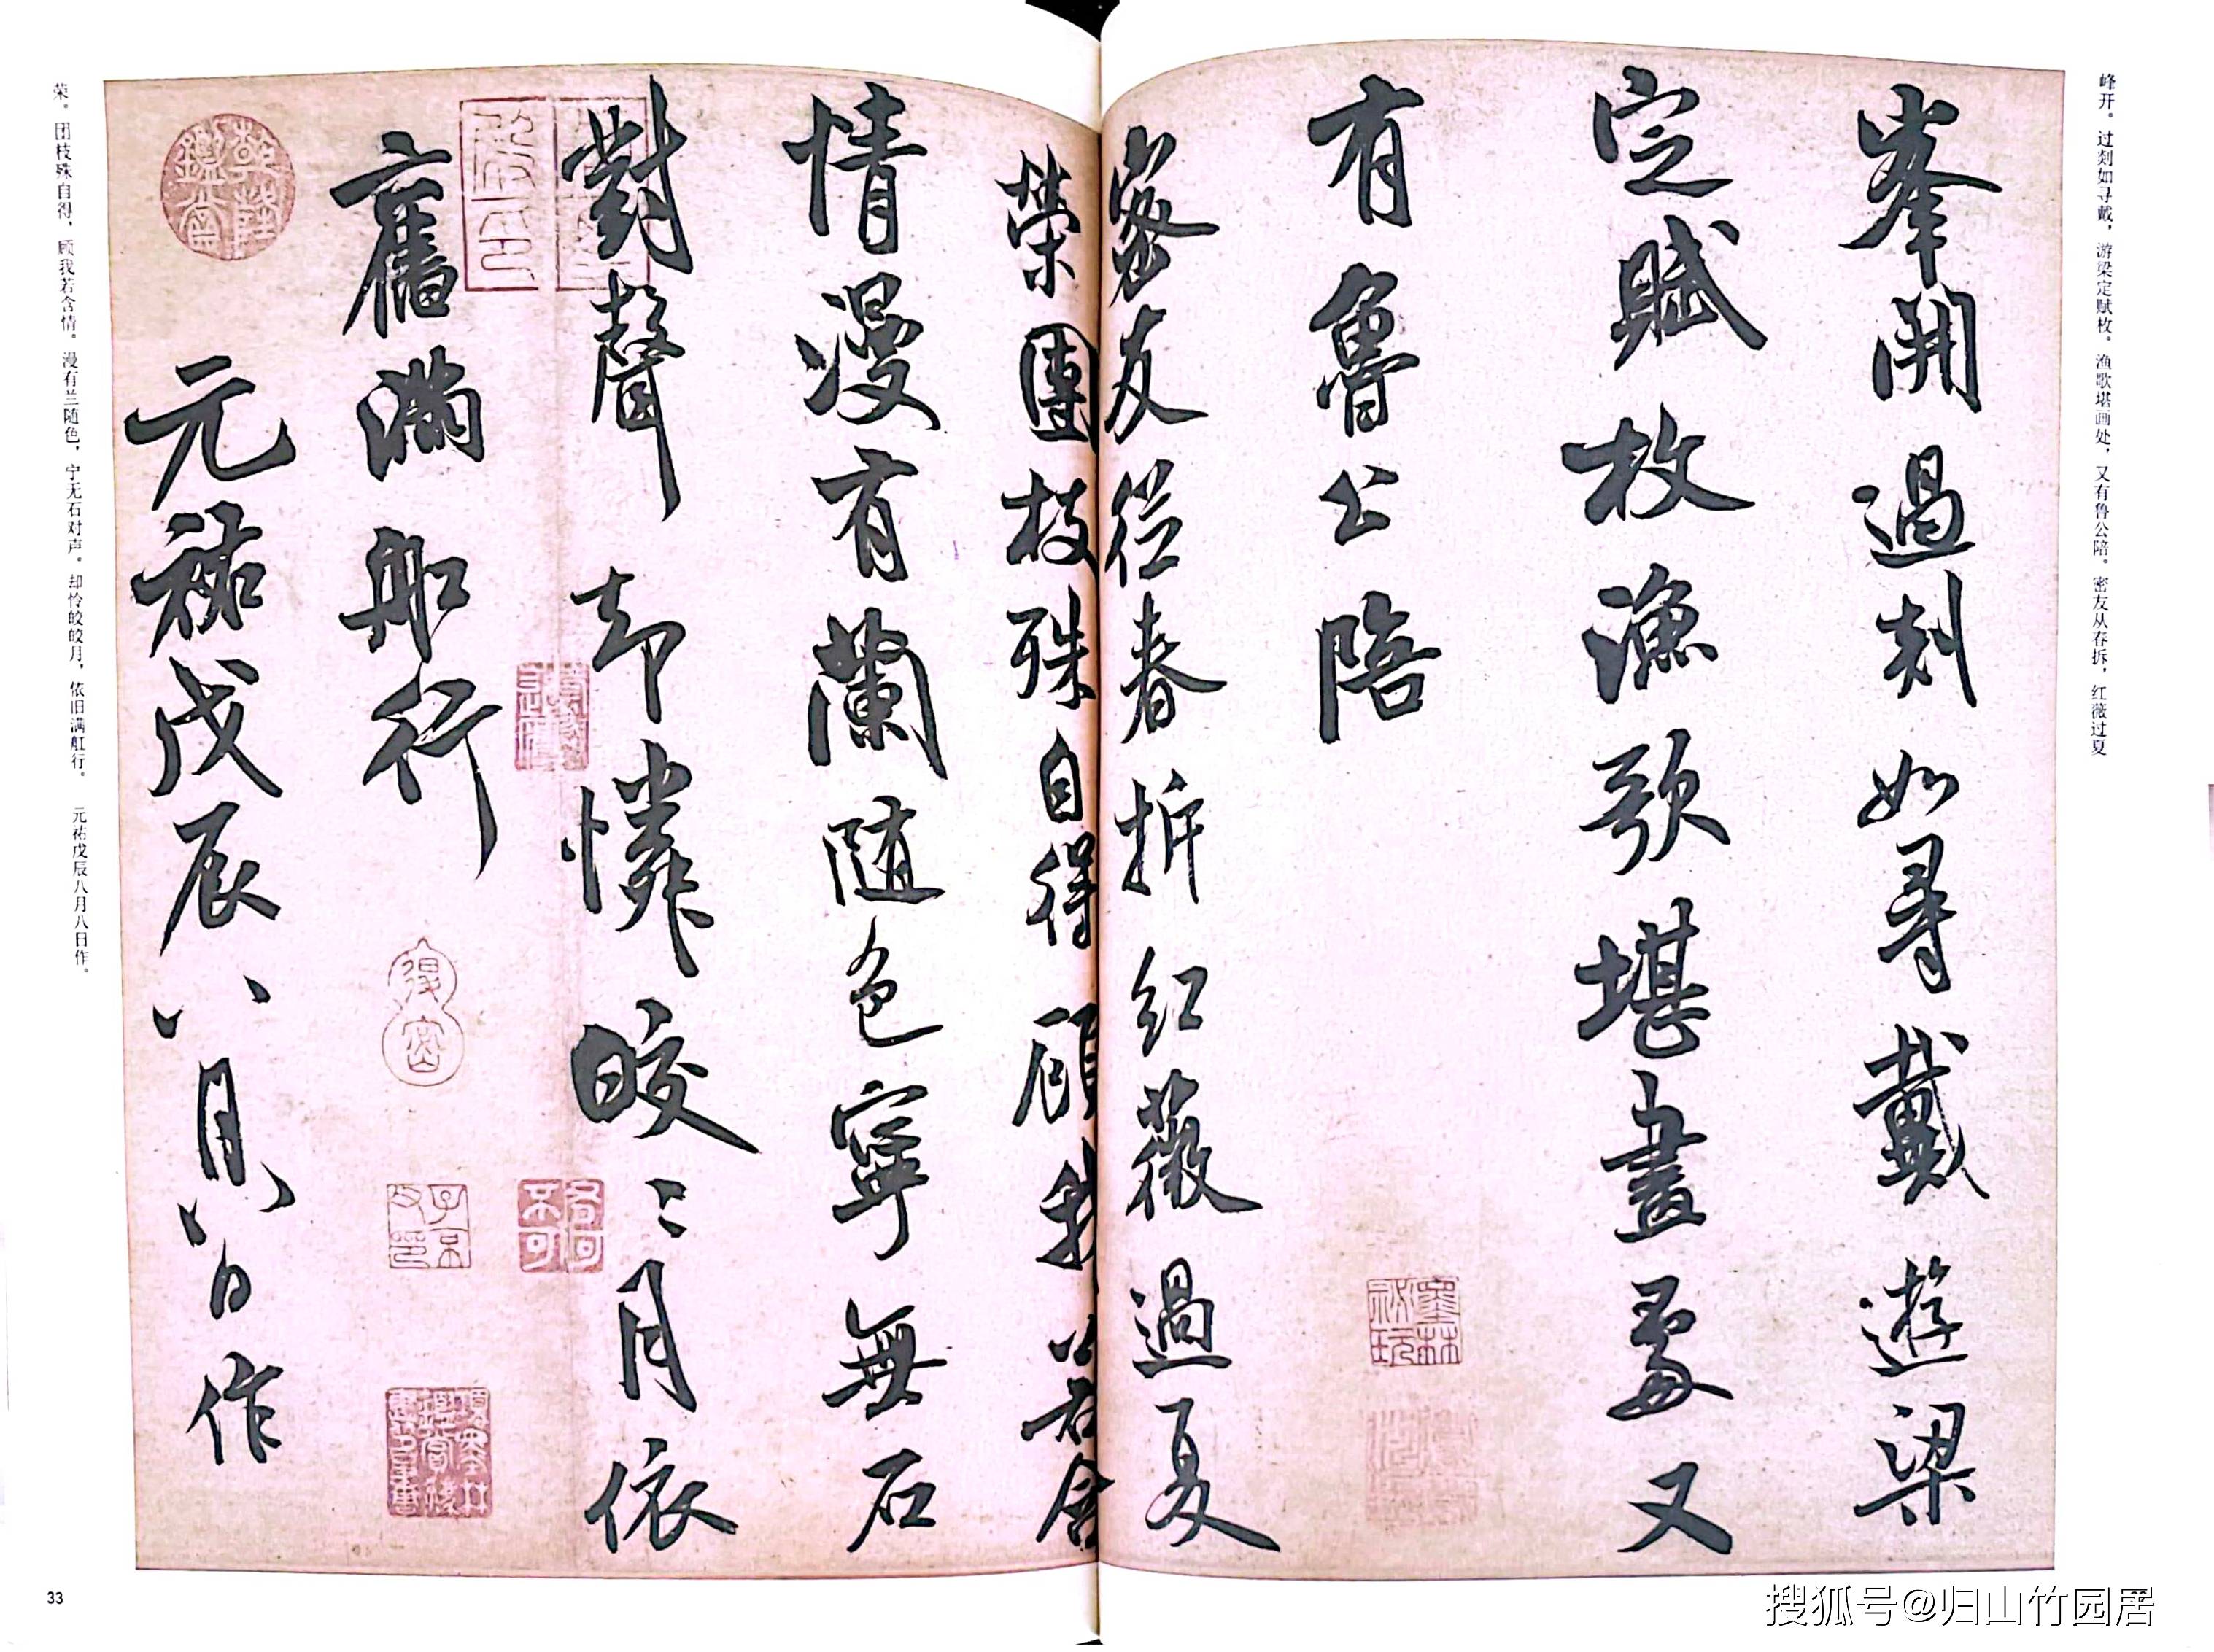 峰开。过剡如寻戴，游梁定赋枚。渔歌堪画处，又有鲁公陪。密友从春拆，红薇过夏
峯開過剡如尋戴遊梁
定賦枚漁歌堪畫處又
有魯公陪
密友從春拆紅薇過夏
榮團枝殊自得顧我若含
情漫有蘭随色寧無石
對聲却憐皎〻月依
舊滿舡行
元祐戊辰八月八日作
荣。团枝殊自得，顾我若含情。漫有兰随色，宁无石对声。却怜皎皎月，依旧满舡行。 元祐戊辰八月八日作。
乾隆鑑賞
子京父印
墨林祕玩
33
搜狐号@归山竹园居